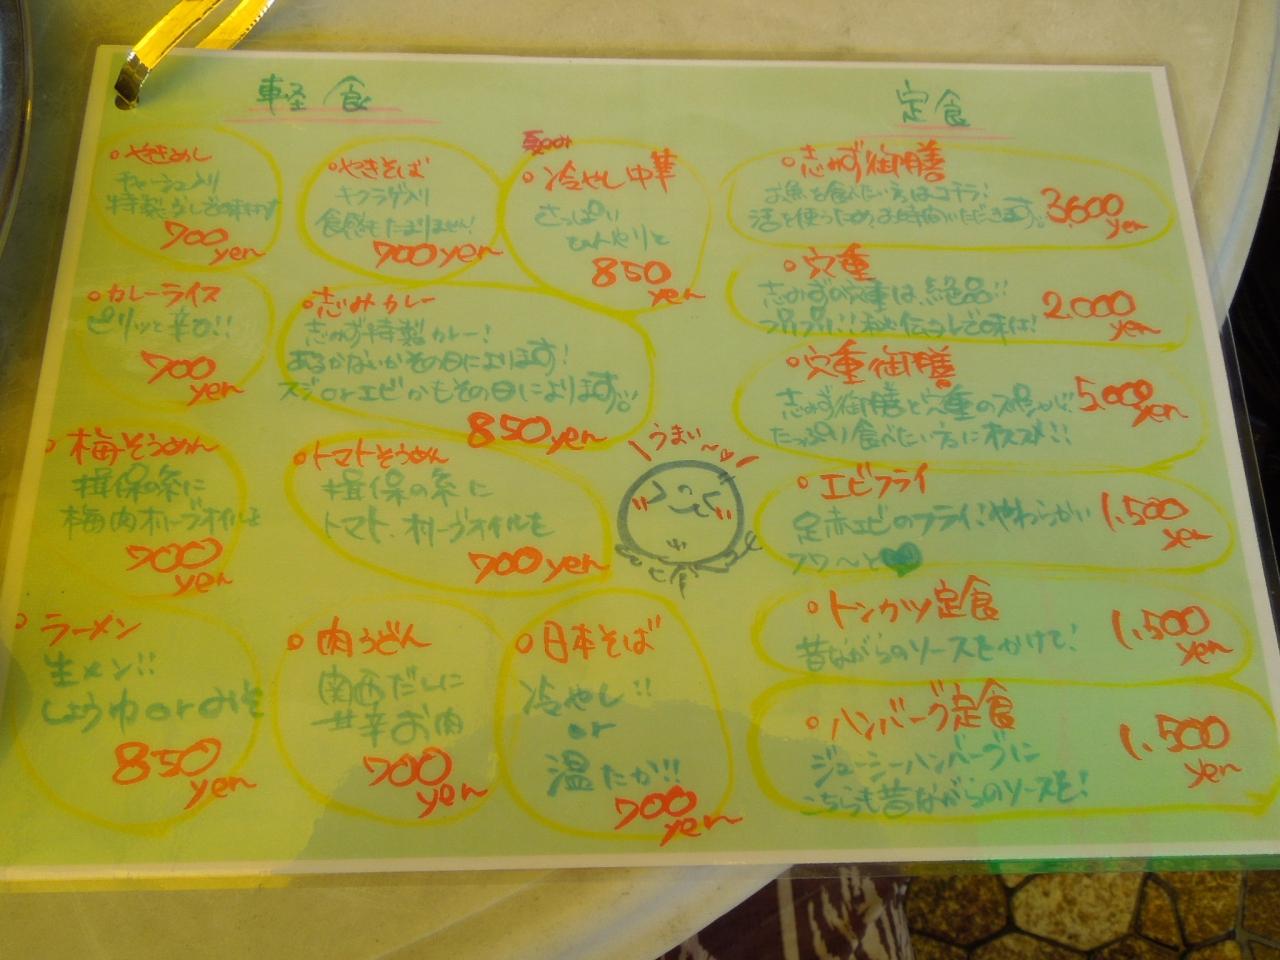 軽食
・やきめし
チャーシュー入り
700
yen
・やきそば
キクラゲ入り
食感もたまりません!
700yen
夏のみ
・冷やし中華
さっぱり
ひんやりと
850
yen
・カレーライス
ピリッと辛ひ!!
700
yen
・志みカレー
志かず特製カレー!
あるかないかその日によります!
スジorエビかもその日によります。
850yen
・梅そうめん
揖保の糸に
梅肉オリーブオイルを
700
yen
・トマトそうめん
揖保の糸に
トマト、オリーブオイルを
700yen
・ラーメン
生メン!!
しょうゆorみそ
850
yen
・肉うどん
関西だしに
甘辛お肉
700
yen
・日本そば
冷やし!!
or
温たか!!
700
yen
うまい〜
定食
・志かず御膳
お魚を食べたい方はコチラ!
活を使うためお時間いただきます。
3.600
yen
・穴重
志かずの穴重は、絶品!!
プリプリ!!秘伝のタレで味は!
2.000
yen
・穴重御膳
志かず御膳と穴重のスペシャル!
たっぷり食べたい方にオススメ!!
5.000
yen
・エビフライ
足赤エビのフライ!やわらかい
フワ〜と
1.500
yen
・トンカツ定食
昔ながらのソースをかけて!
1.500
yen
・ハンバーグ定食
ジューシーハンバーグに
こちらも昔ながらのソースを!
1.500
yen